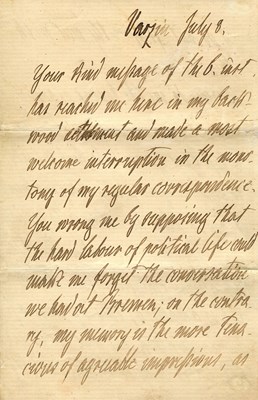 Varzin July 8.
Your kind message of the 6. inst.
has reached me here in my back-
wood and made a most
welcome interruption in the mono-
tony of my regular correspondence.
You wrong me by supposing that
the hard labour of political life could
make me forget the conversation
we had at Bremen; on the contra-
ry, my memory is the more tena-
cious of agreeable impressions, as